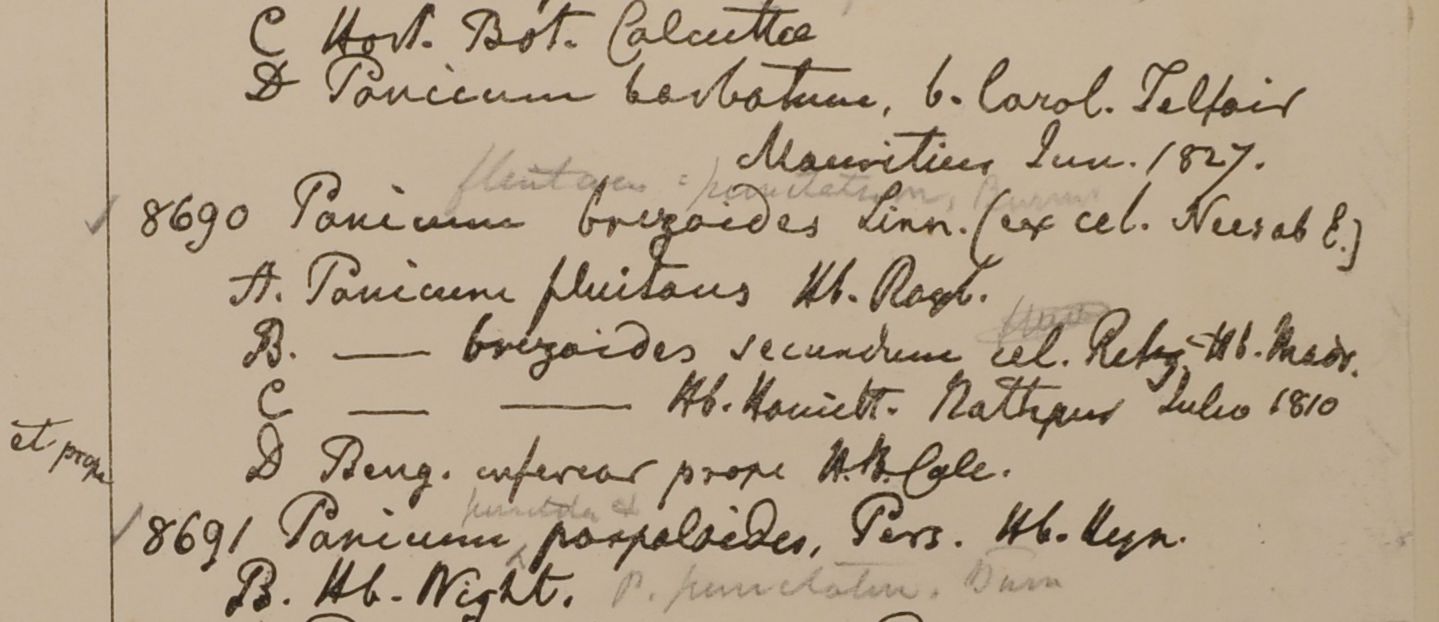 C Hort. Bot. Calcutta
D Panicum barbatum, b. Carol. Telfair
Mauritius Jun. 1827.
fluitans = punctatum, Burm
8690 Panicum brizoides Linn. (ex cel. Nees ab E.)
A. Panicum fluitans Hb. Roxb.
B. — brizoides secundum cel. Retz. Hb. Madr.
C — — Hb. Hamilt. Nathpur Julio 1810
D Beng. inferior prope H.B. Calc.
et prope
8691 Panicum paspaloides, Pers. Hb. Heyn.
B. Hb. Wight. P. punctatum. Burm